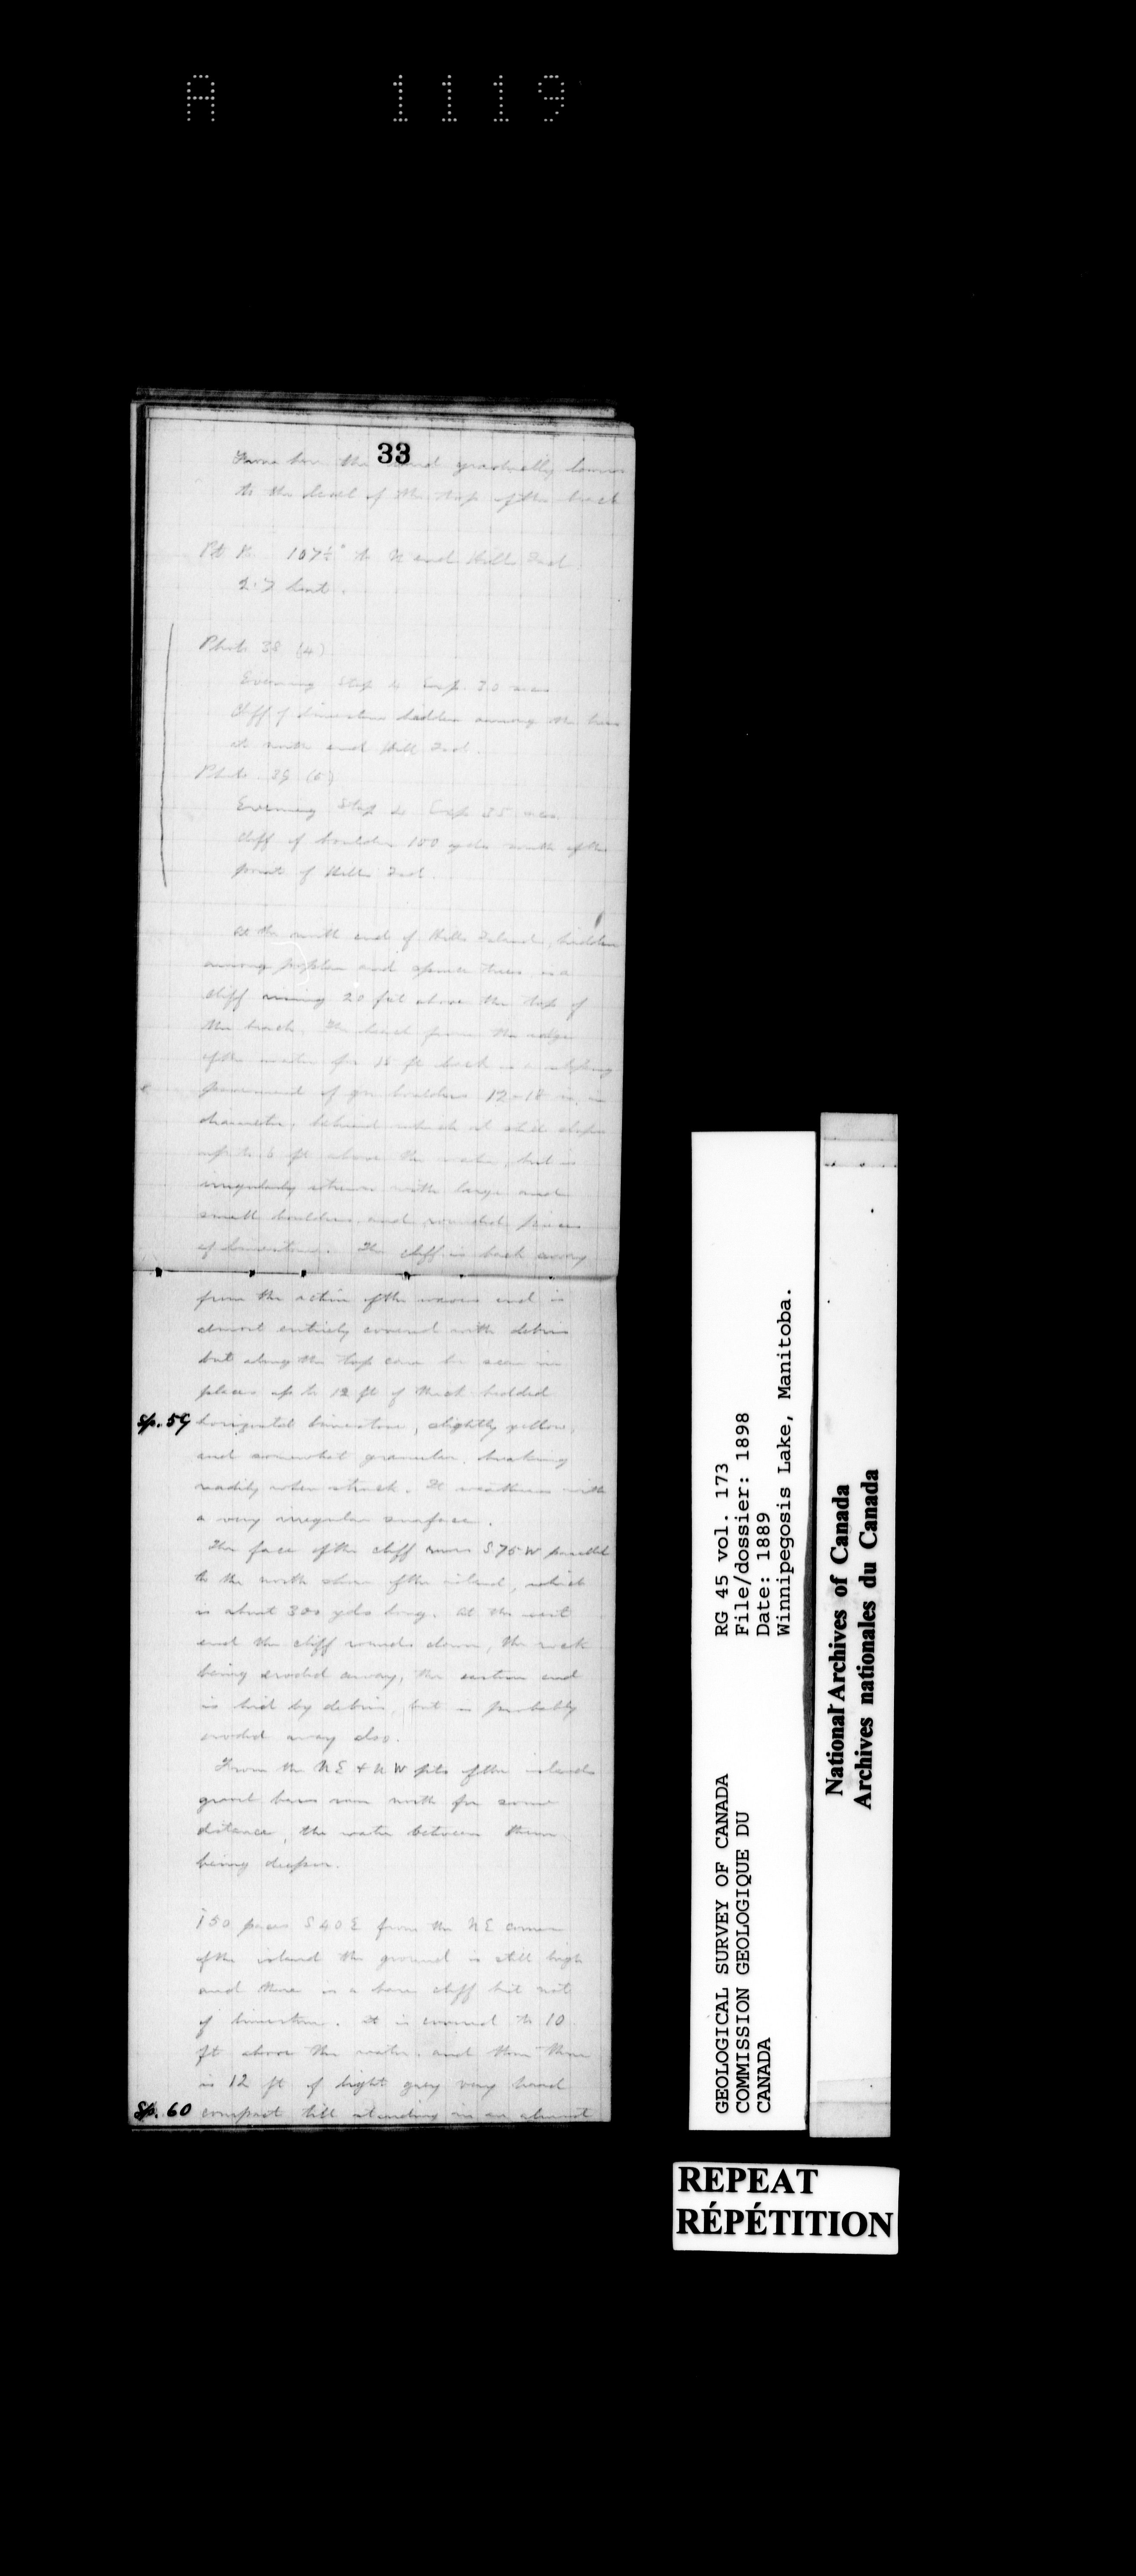 A 1119
33
From here the land gradually lowers
to the level of the top of the beach
Pt K. 107½° to N end Hills Isd.
2.7 boat.
Photo 38 (4)
Evening Stop 4 Exp. 30 secs
Cliff of limestone hidden among the trees
at north end Hill Isd.
Photo 39 (5)
Evening Stop 4 Exp 35 secs
cliff of boulder 150 yds south of the
point of Hills Isd.
At the north end of Hills Island, hidden
among poplar and spruce trees, is a
cliff rising 20 feet above the top of
the beach. The beach from the edge
of the water for 15 ft back is a sloping
pavement of gn boulders 12-18 in. in
diameter, behind which it still slopes
up to 6 ft above the water, but is
irregularly strewn with large and
small boulders and rounded pieces
of limestone. The cliff is back away
from the action of the waves and is
almost entirely covered with debris
but along the top can be seen in
places up to 12 ft of thick bedded
Sp. 59 horizontal limestone, slightly yellow,
and somewhat granular, breaking
readily when struck. It weathers with
a very irregular surface.
The face of the cliff runs S75W parallel
to the north shore of the island, which
is about 300 yds long. At the west
end the cliff rounds down, the rock
being eroded away, the eastern end
is hid by debris, but is probably
eroded away also.
From the NE & NW pts of the islands
gravel bars run north for some
distance, the water between them
being deeper.
150 paces S40E from the NE corner
of the island the ground is still high
and there is a bare cliff but not
of limestone. It is covered to 10
ft above the water, and then there
is 12 ft of light grey very hard
Sp. 60 compact till standing in an almost
GEOLOGICAL SURVEY OF CANADA
COMMISSION GEOLOGIQUE DU
CANADA
RG 45 vol. 173
File/dossier: 1898
Date: 1889
Winnipegosis Lake, Manitoba.
National Archives of Canada
Archives nationales du Canada
REPEAT
RÉPÉTITION